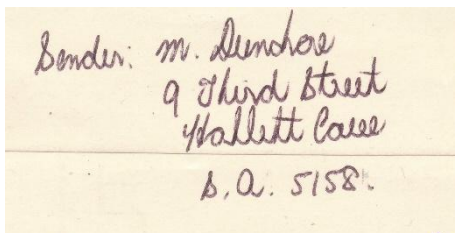 Sender: M.
9 Third Street
Hallett Cove
S.A. 5158.